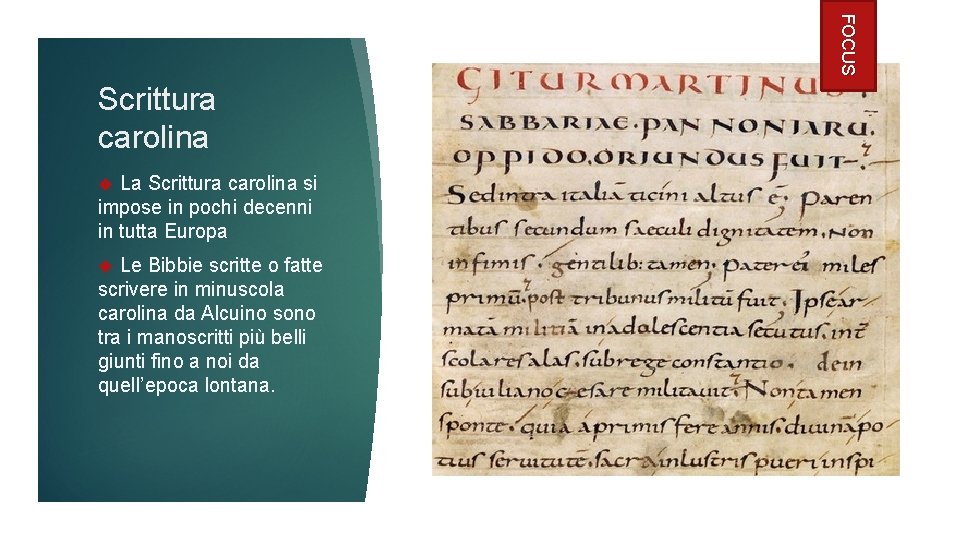 FOCUS
Scrittura
carolina
La Scrittura carolina si
impose in pochi decenni
in tutta Europa
Le Bibbie scritte o fatte
scrivere in minuscola
carolina da Alcuino sono
tra i manoscritti più belli
giunti fino a noi da
quell’epoca lontana.
GITUR MARTINUS
SABBARIAE·PANNONIARU
OPPIDO·ORIUNDUS FUIT
Sed intra italiā ticini altus ē· Paren
tibus secundum saeculi dignitatem, Non
infimis· gentilib: tamen· Pater ei miles
primū· post tribunus militū fuit· Ipse ar
matā militiā in adolescentia secutus, int
scolares alas, sub rege constantio· dein
sub iuliano cesare militavit· Non tamen
sponte· quia a primis fere annis, divinā po
tius servitutē, sacra inlustris pueri inspi